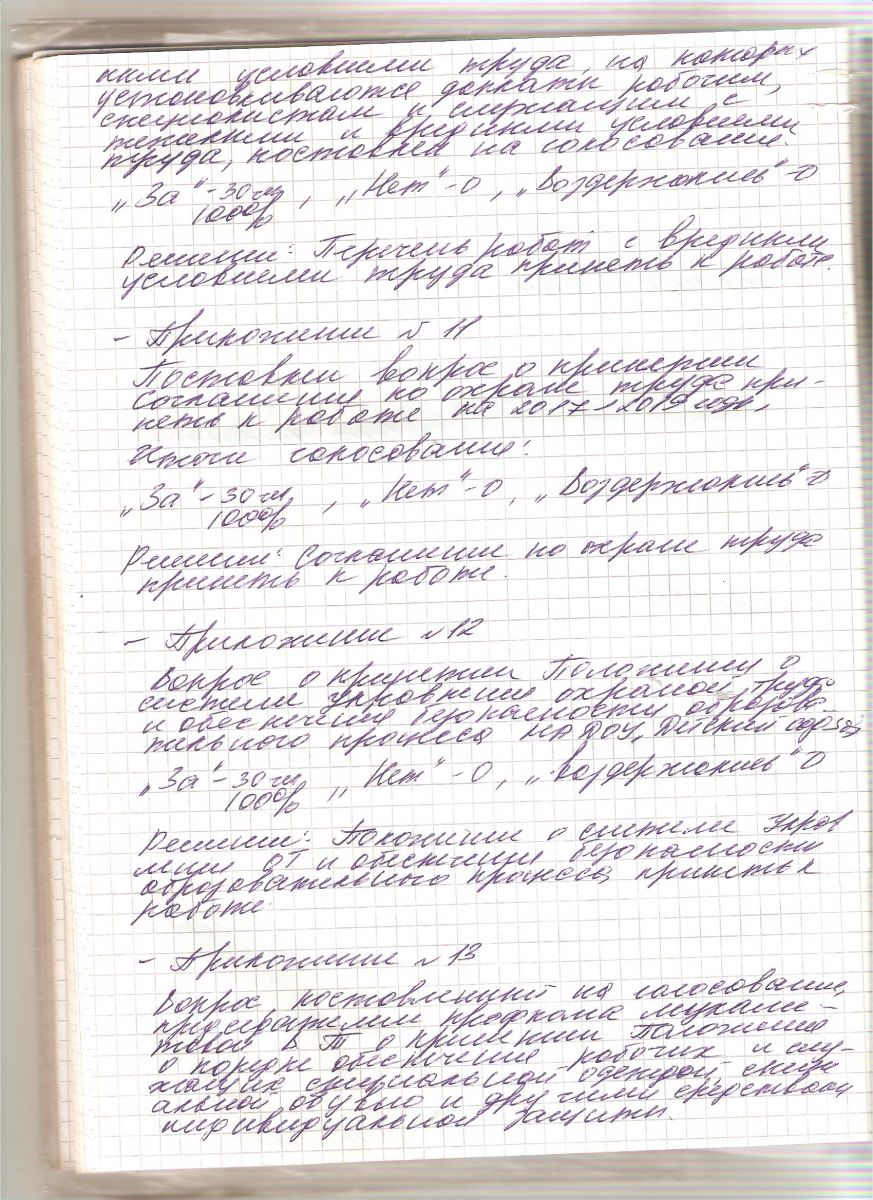 ными условиями труда, на которых
устанавливаются доплаты рабочим,
специалистам и служащим с
тяжелыми и вредными условиями
труда, поставлен на голосование.
„За“ - 30 чел , „Нет“ - 0 , „Воздержались“ - 0
100%
Решили: Перечень работ с вредными
условиями труда принять к работе.
- Приложение № 11
Поставлен вопрос о принятии
соглашения по охране труда при-
нять к работе на 2017 - 2019 годы.
Итоги голосования:
„За“ - 30 чел , „Нет“ - 0 , „Воздержались“ - 0
100%
Решили: Соглашение по охране труда
принять к работе.
- Приложение № 12
Вопрос о принятии Положения о
системе управления охраной труда
и обеспечения безопасности образова-
тельного процесса МАДОУ „Детский сад
„За“ - 30 чел , „Нет“ - 0 , „Воздержались“ 0
100%
Решили: Положение о системе управ
ления ОТ и обеспечения безопасности
образовательного процесса принять к
работе.
- Приложение № 13
Вопрос, поставленный на голосование
председателем профкома
о принятии Положения
о порядке обеспечения рабочих и слу-
жащих специальной одеждой, специ
альной обувью и другими средствами
индивидуальной защиты.